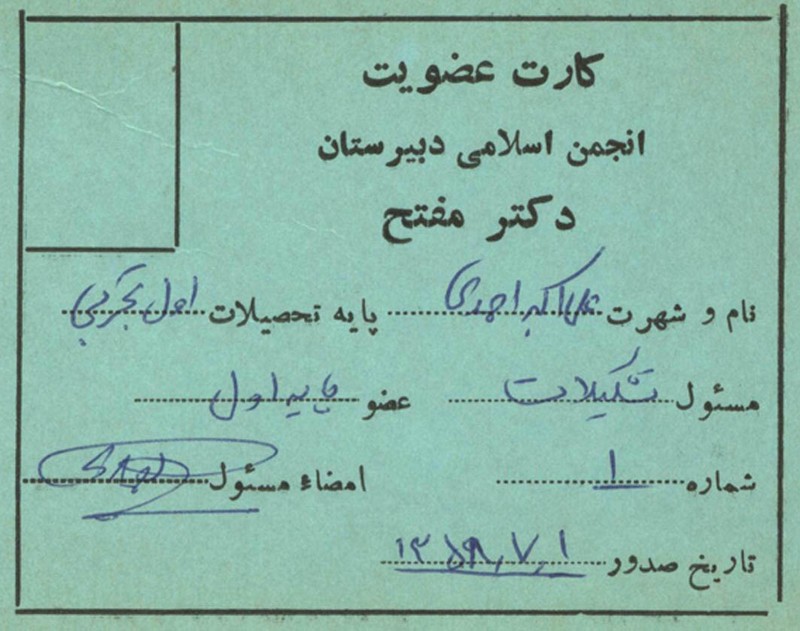 کارت عضویت
انجمن اسلامی دبیرستان
دکتر مفتح
نام و شهرت علی اکبر احمدی پایه تحصیلات اول تجربی
مسئول تشکیلات عضو پایه اول
شماره ۱ امضاء مسئول
تاریخ صدور ۱۳۵۹،۷،۱